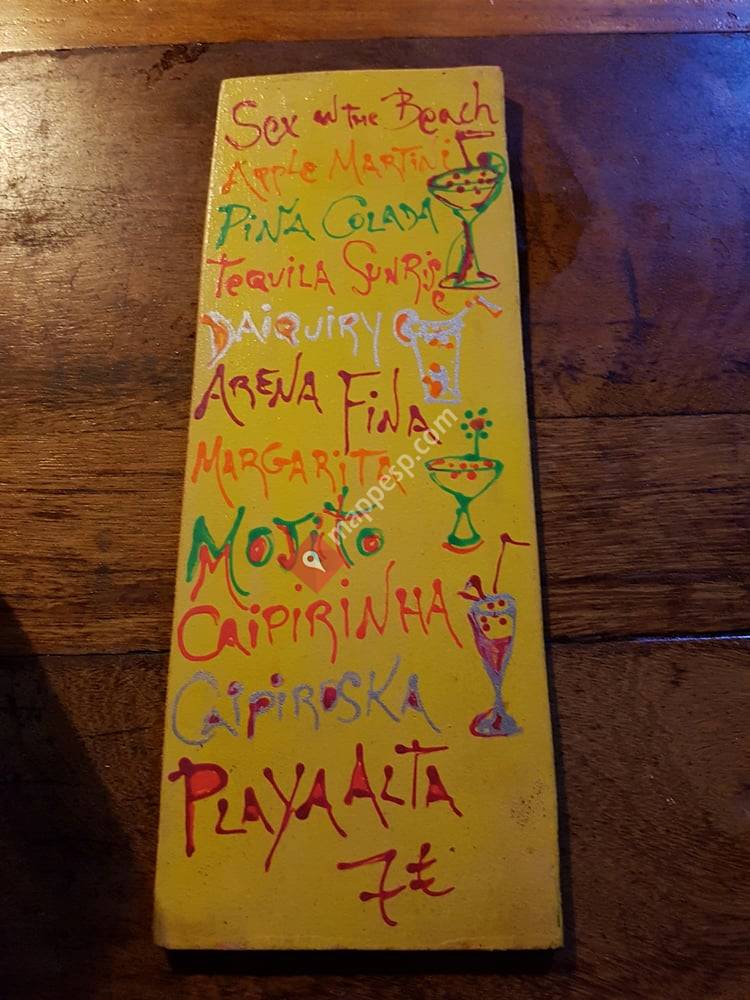 Sex on the Beach
Apple Martini
Piña Colada
Tequila Sunrise
Daiquiry
Arena Fina
Margarita
Mojito
Caipirinha
Caipiroska
Playa Alta
7€
mappesp.com